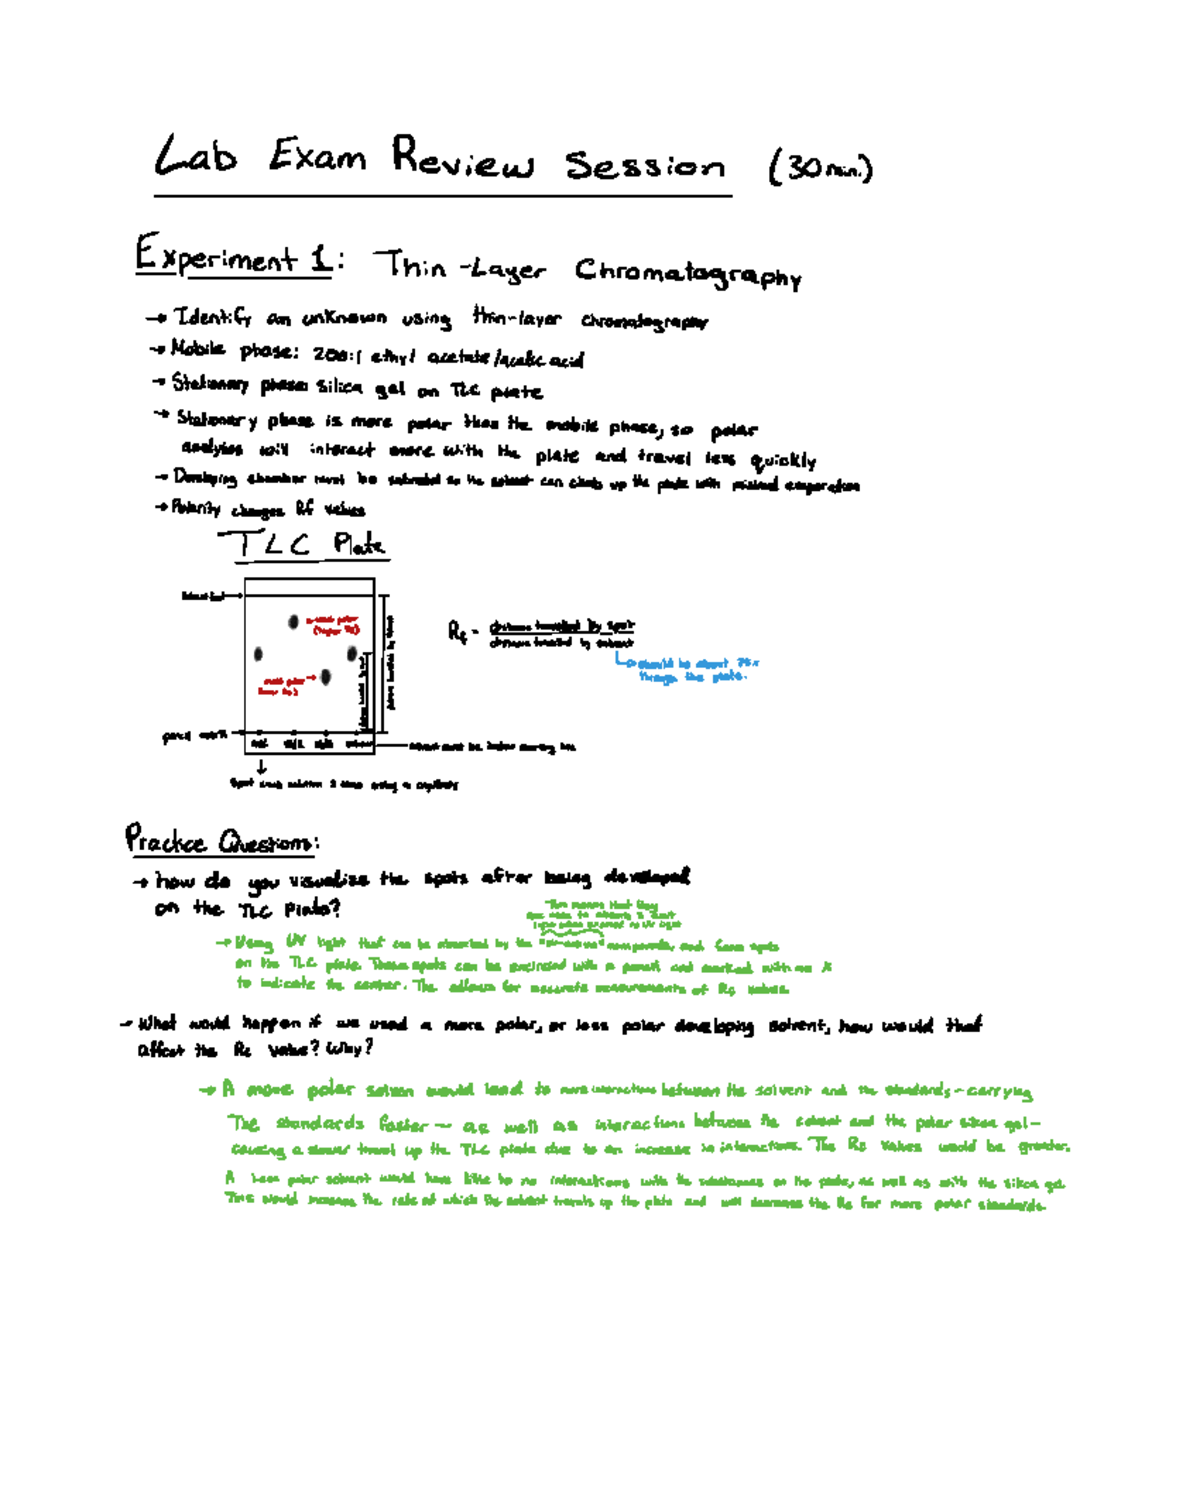 Lab Exam Review Session (30 min.)
Experiment 1: Thin-Layer Chromatography
→ Identify an unknown using thin-layer chromatography
→ Mobile phase: 200:1 ethyl acetate/acetic acid
→ Stationary phase: silica gel on TLC plate
→ Stationary phase is more polar than the mobile phase, so polar
analytes will interact more with the plate and travel less quickly
→ Developing chamber must be saturated so the solvent can climb up the plate with minimal evaporation
→ Polarity changes Rf values
TLC Plate
(higher Rf)
pencil
Rf = distance travelled by spot
distance travelled by solvent
→ should be about 75%
through the plate.
Spot each solution 3 times using a capillary
Practice Questions:
→ how do you visualize the spots after being developed
on the TLC Plate?
This means that they
→ Using UV light that can be absorbed by the "UV-active" compounds, and form spots
on the TLC plate. These spots can be encircled with a pencil and marked with an X
to indicate the center. The allows for accurate measurements of Rf values.
→ What would happen if we used a more polar, or less polar developing solvent, how would that
affect the Rf value? Why?
→ A more polar solven would lead to more interactions between the solvent and the standards - carrying
The standards faster - as well as interactions between the solvent and the polar silica gel -
causing a slower travel up the TLC plate due to an increase in interactions. The Rf values would be greater.
A less polar solvent would have like to no interactions with the substances on the plate, as well as with the silica gel
This would increase the rate at which the solvent travels up the plate and will decrease the Rf for more polar standards.